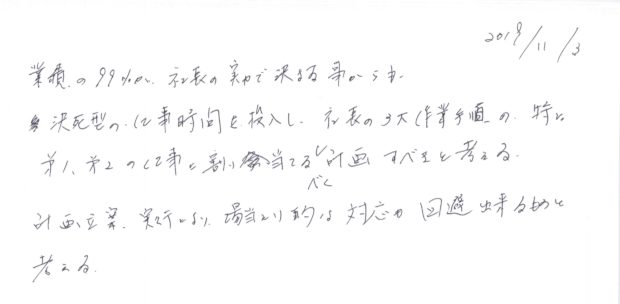 2019/11/3
業績の99%が、社長の実力で決まる事からも、
決死型の仕事時間を投入し、社長の3大作業手順の、特に
第1、第2の仕事に割り当てるべく計画すべきと考える。
計画立案、実行により、場当たり的な対応が回避出来るものと
考える。